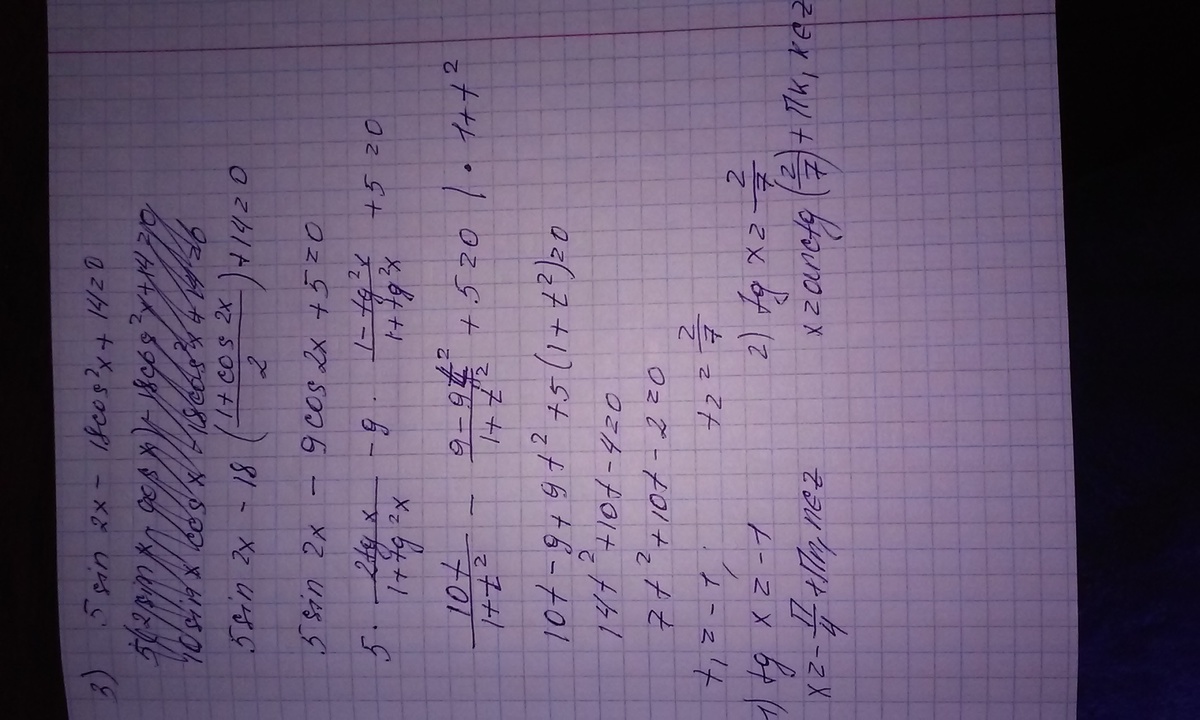 3) 5 sin 2x - 18cos²x + 14 = 0
5 sin 2x - 18 (1 + cos 2x / 2) + 14 = 0
5 sin 2x - 9 cos 2x + 5 = 0
5 · 2tg x / 1 + tg²x - 9 · 1 - tg²x / 1 + tg²x + 5 = 0
10t / 1 + t² - 9 - 9t² / 1 + t² + 5 = 0 | · 1 + t²
10t - 9 + 9t² + 5(1 + t²) = 0
14t² + 10t - 4 = 0
7t² + 10t - 2 = 0
t₁ = -1; t₂ = 2/7
1) tg x = -1 2) tg x = 2/7
x = -π/4 + πn, n∈z x = arctg (2/7) + πk, k∈z